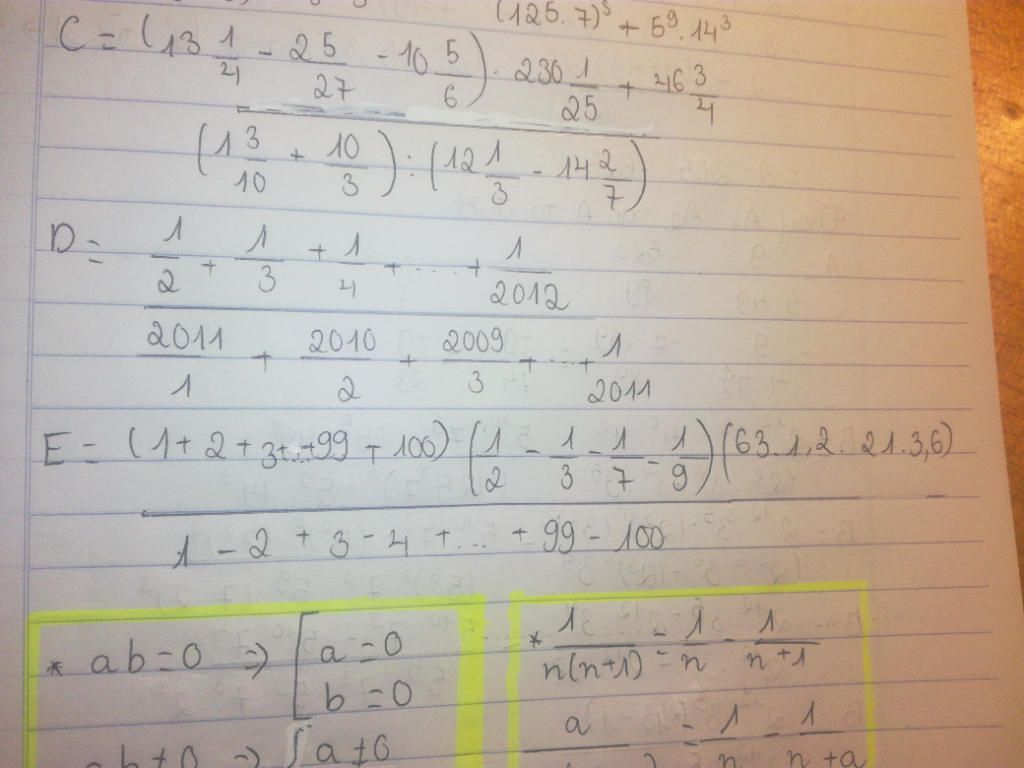 (125.7)³ + 5⁹.14³
C = (13 1/4 - 2 5/27 - 10 5/6) . 230 1/25 + 46 3/4
(1 3/10 + 10/3) : (12 1/3 - 14 2/7)
D = 1/2 + 1/3 + 1/4 + ... + 1/2012
2011/1 + 2010/2 + 2009/3 + ... + 1/2011
E = (1 + 2 + 3+...+99 + 100) (1/2 - 1/3 - 1/7 - 1/9) (63.1,2. 21.3,6)
1 - 2 + 3 - 4 + ... + 99 - 100
* ab = 0 => [ a = 0
b = 0
* 1/n(n+1) = 1/n - 1/n+1
ab ≠ 0 => { a ≠ 0
a = 1/n - 1/n+a